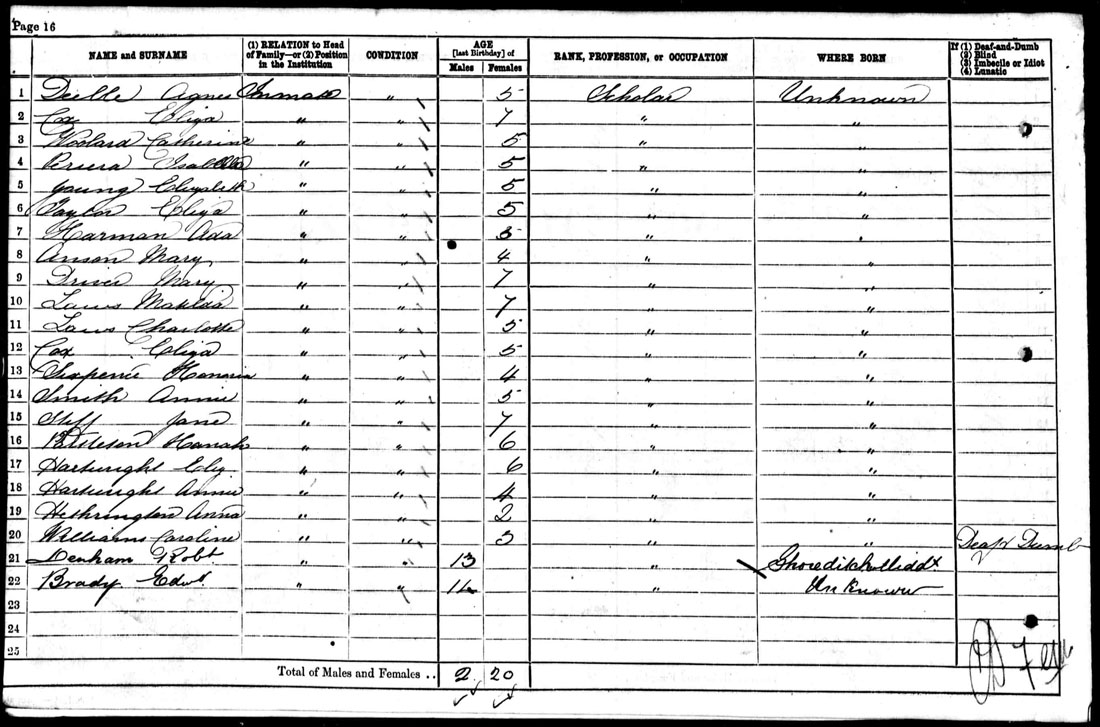 Page 16
NAME and SURNAME (1) RELATION to Head of Family—or (2) Position in the Institution CONDITION AGE [last Birthday] of Males Females RANK, PROFESSION, or OCCUPATION WHERE BORN If (1) Deaf-and-Dumb (2) Blind (3) Imbecile or Idiot (4) Lunatic
1 Agnes Inmate " 5 Scholar Unknown
2 Cox Eliza " " 7 " "
3 Woolard Catherine " " 5 " "
4 Isabella " " 5 " "
5 Young Elizabeth " " 5 " "
6 Taylor Eliza " " 5 " "
7 Harman Ada " " " "
8 Anson Mary " " 4 " "
9 Driver Mary " " 7 " "
10 Laws Matilda " " 7 " "
11 Laws Charlotte " " 5 " "
12 Cox Eliza " " 5 " "
13 Sixpence Honoria " " 4 " "
14 Smith Annie " " 5 " "
15 Jane " " 7 " "
16 Hanah " " 6 " "
17 Hartwright Eliz " " 6 " "
18 Hartwright Annie " " 4 " "
19 Hethrington Anna " " 2 " "
20 Williams Caroline " " 3 " " Deaf & Dumb
21 Denham Robt " " 13 " Shoreditch Middx
22 Brady Edwd " " 14 " Unknown
23
24
25
Total of Males and Females .. 2 20